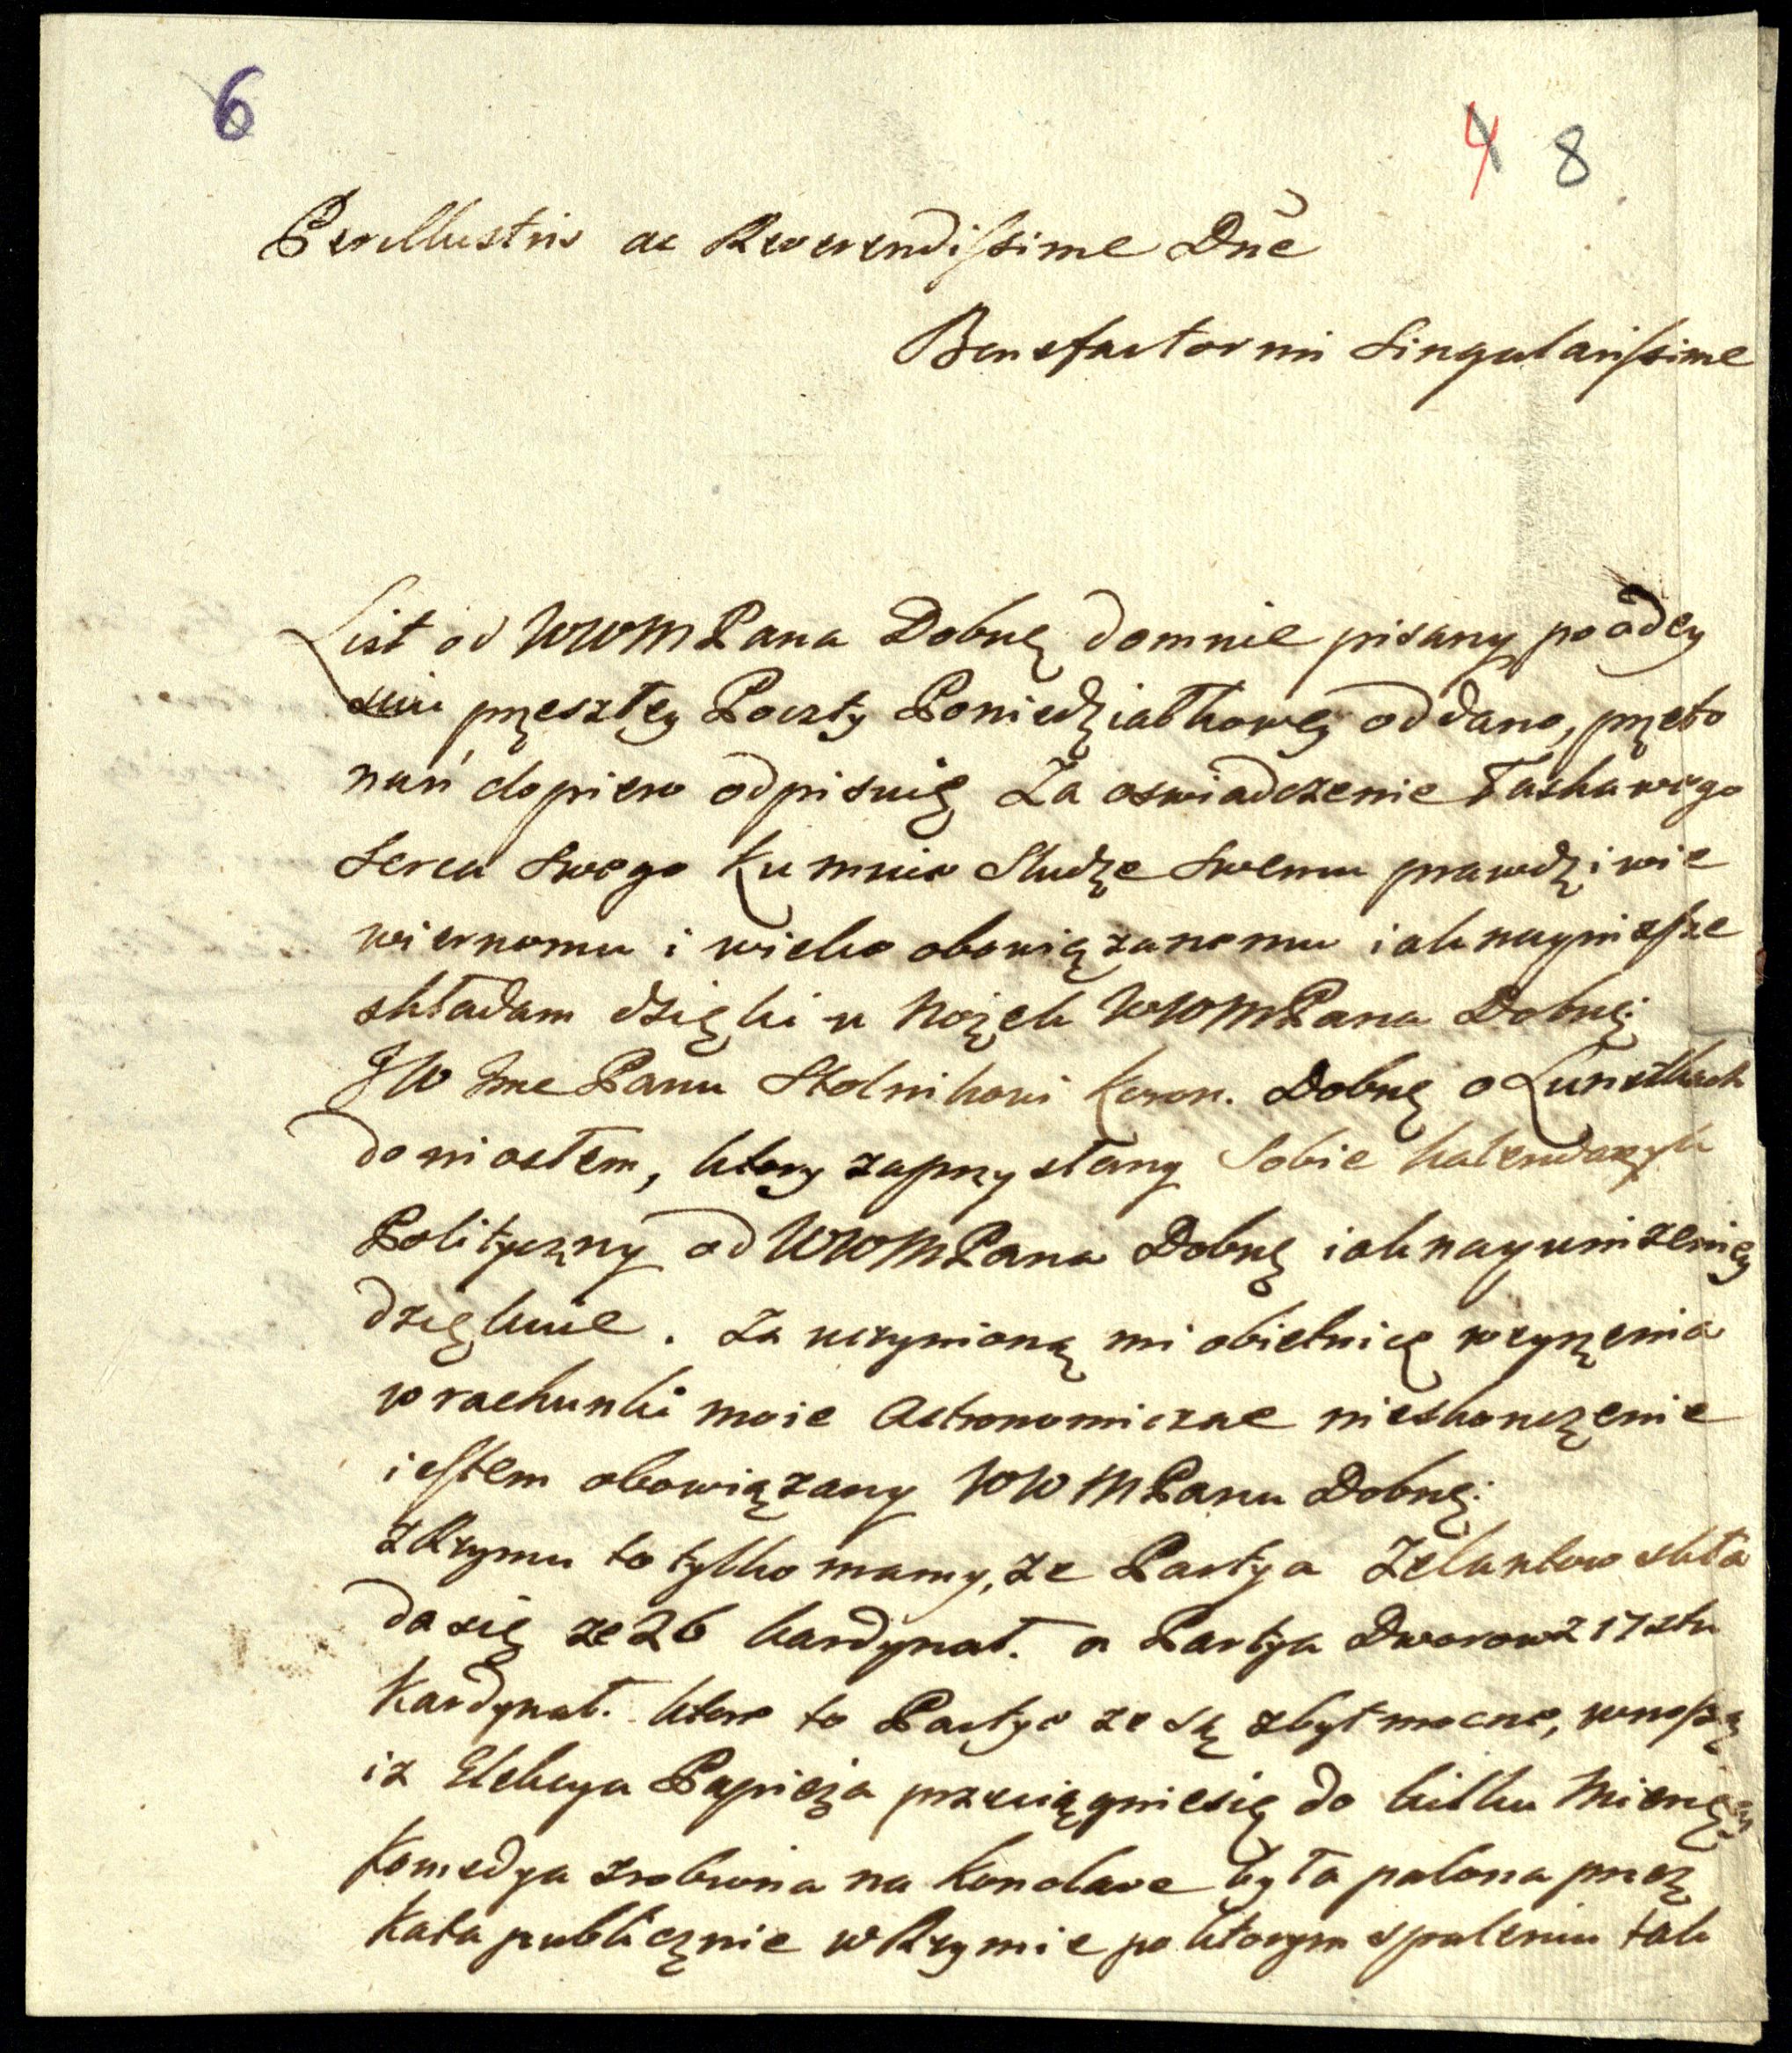 6
4 8
Perillustris ac Reverendissime Dne
Benefactor mi Singularissime
List od WWMPana Dobrę domnie pisany po odey
sciu pręszłey Poczty Poniedziałkowey oddano, pręto
nań dopiero odpisuię Za oswiadczenie łaskawego
serca swego ku mnie Słudze swemu prawdziwie
wiernemu i wielce obowiązanemu iak nayniższe
składam dzięki u Nożek WWMPana Dobrę.
JW Jmc Panu Stolnikowi Koron. Dobrę o Lunetkach
doniosłem, ktory za przysłany sobie kalendarzyk
Polityczny od WWMPana Dobrę iak nayunizeniey
dziękuie. Za uczynioną mi obietnicę wzyrzenia
w rachunki moie Astronomiczne nieskonczenie
iestem obowiązany WWMPanu Dobrę.
z Rzymu to tylko mamy, ze Partya Zelantow skła
da się ze 26 kardynał. a Partya Dworow z 17stu
Kardynał. ktore to Partye ze są zbyt mocne, wnoszą
iz Elekcya Papieża przeciągnie się do kilku Mierzęcy
Komedya zrobiona na konclave była palona przez
Kata publicznie w Rzymie po ktorym spaleniu tak